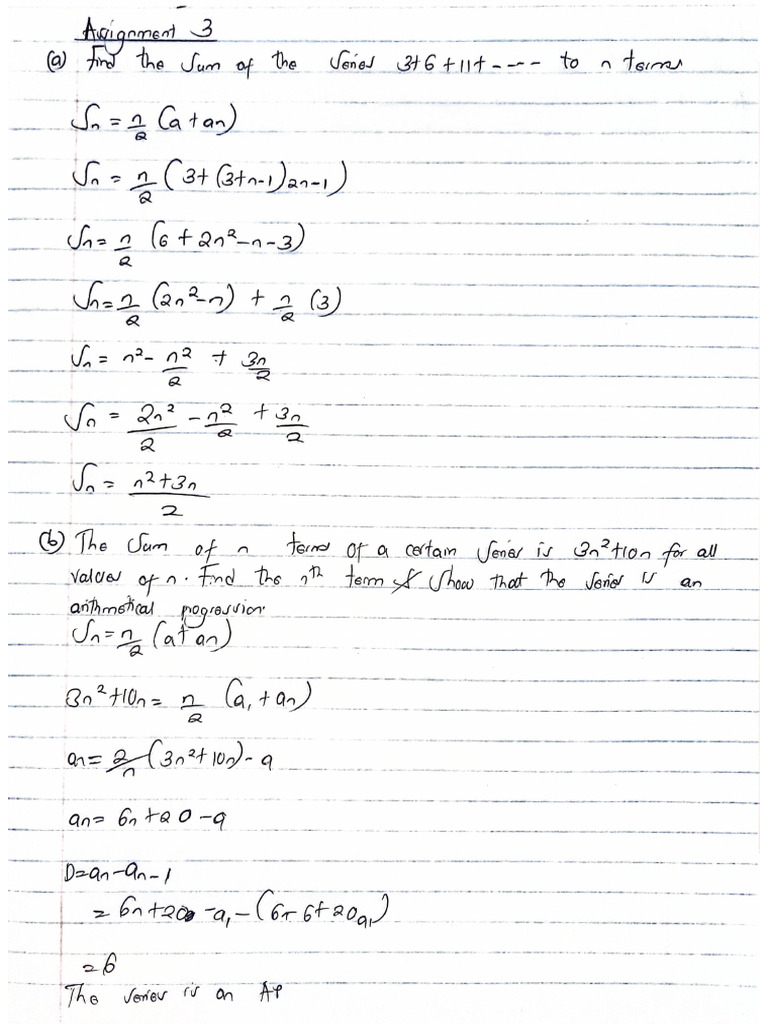 Assignment 3
(a) Find the Sum of the Series 3+6+11+---- to n terms
Sn = n/2 (a + an)
Sn = n/2 (3+ (3+n-1)2n-1)
Sn = n/2 (6 + 2n²-n-3)
Sn = n/2 (2n²-n) + n/2 (3)
Sn = n² - n²/2 + 3n/2
Sn = 2n²/2 - n²/2 + 3n/2
Sn = n²+3n/2
(b) The Sum of n terms of a certain Series is 3n²+10n for all
values of n. Find the nth term & Show that the Series is an
arithmetical progression.
Sn = n/2 (a+an)
3n²+10n = n/2 (a₁ + an)
an = 2/n (3n²+10n) - a
an = 6n +20 -a
D = an - an-1
= 6n+20 -a₁ - (6n-6+20a₁)
= 6
The series is an AP